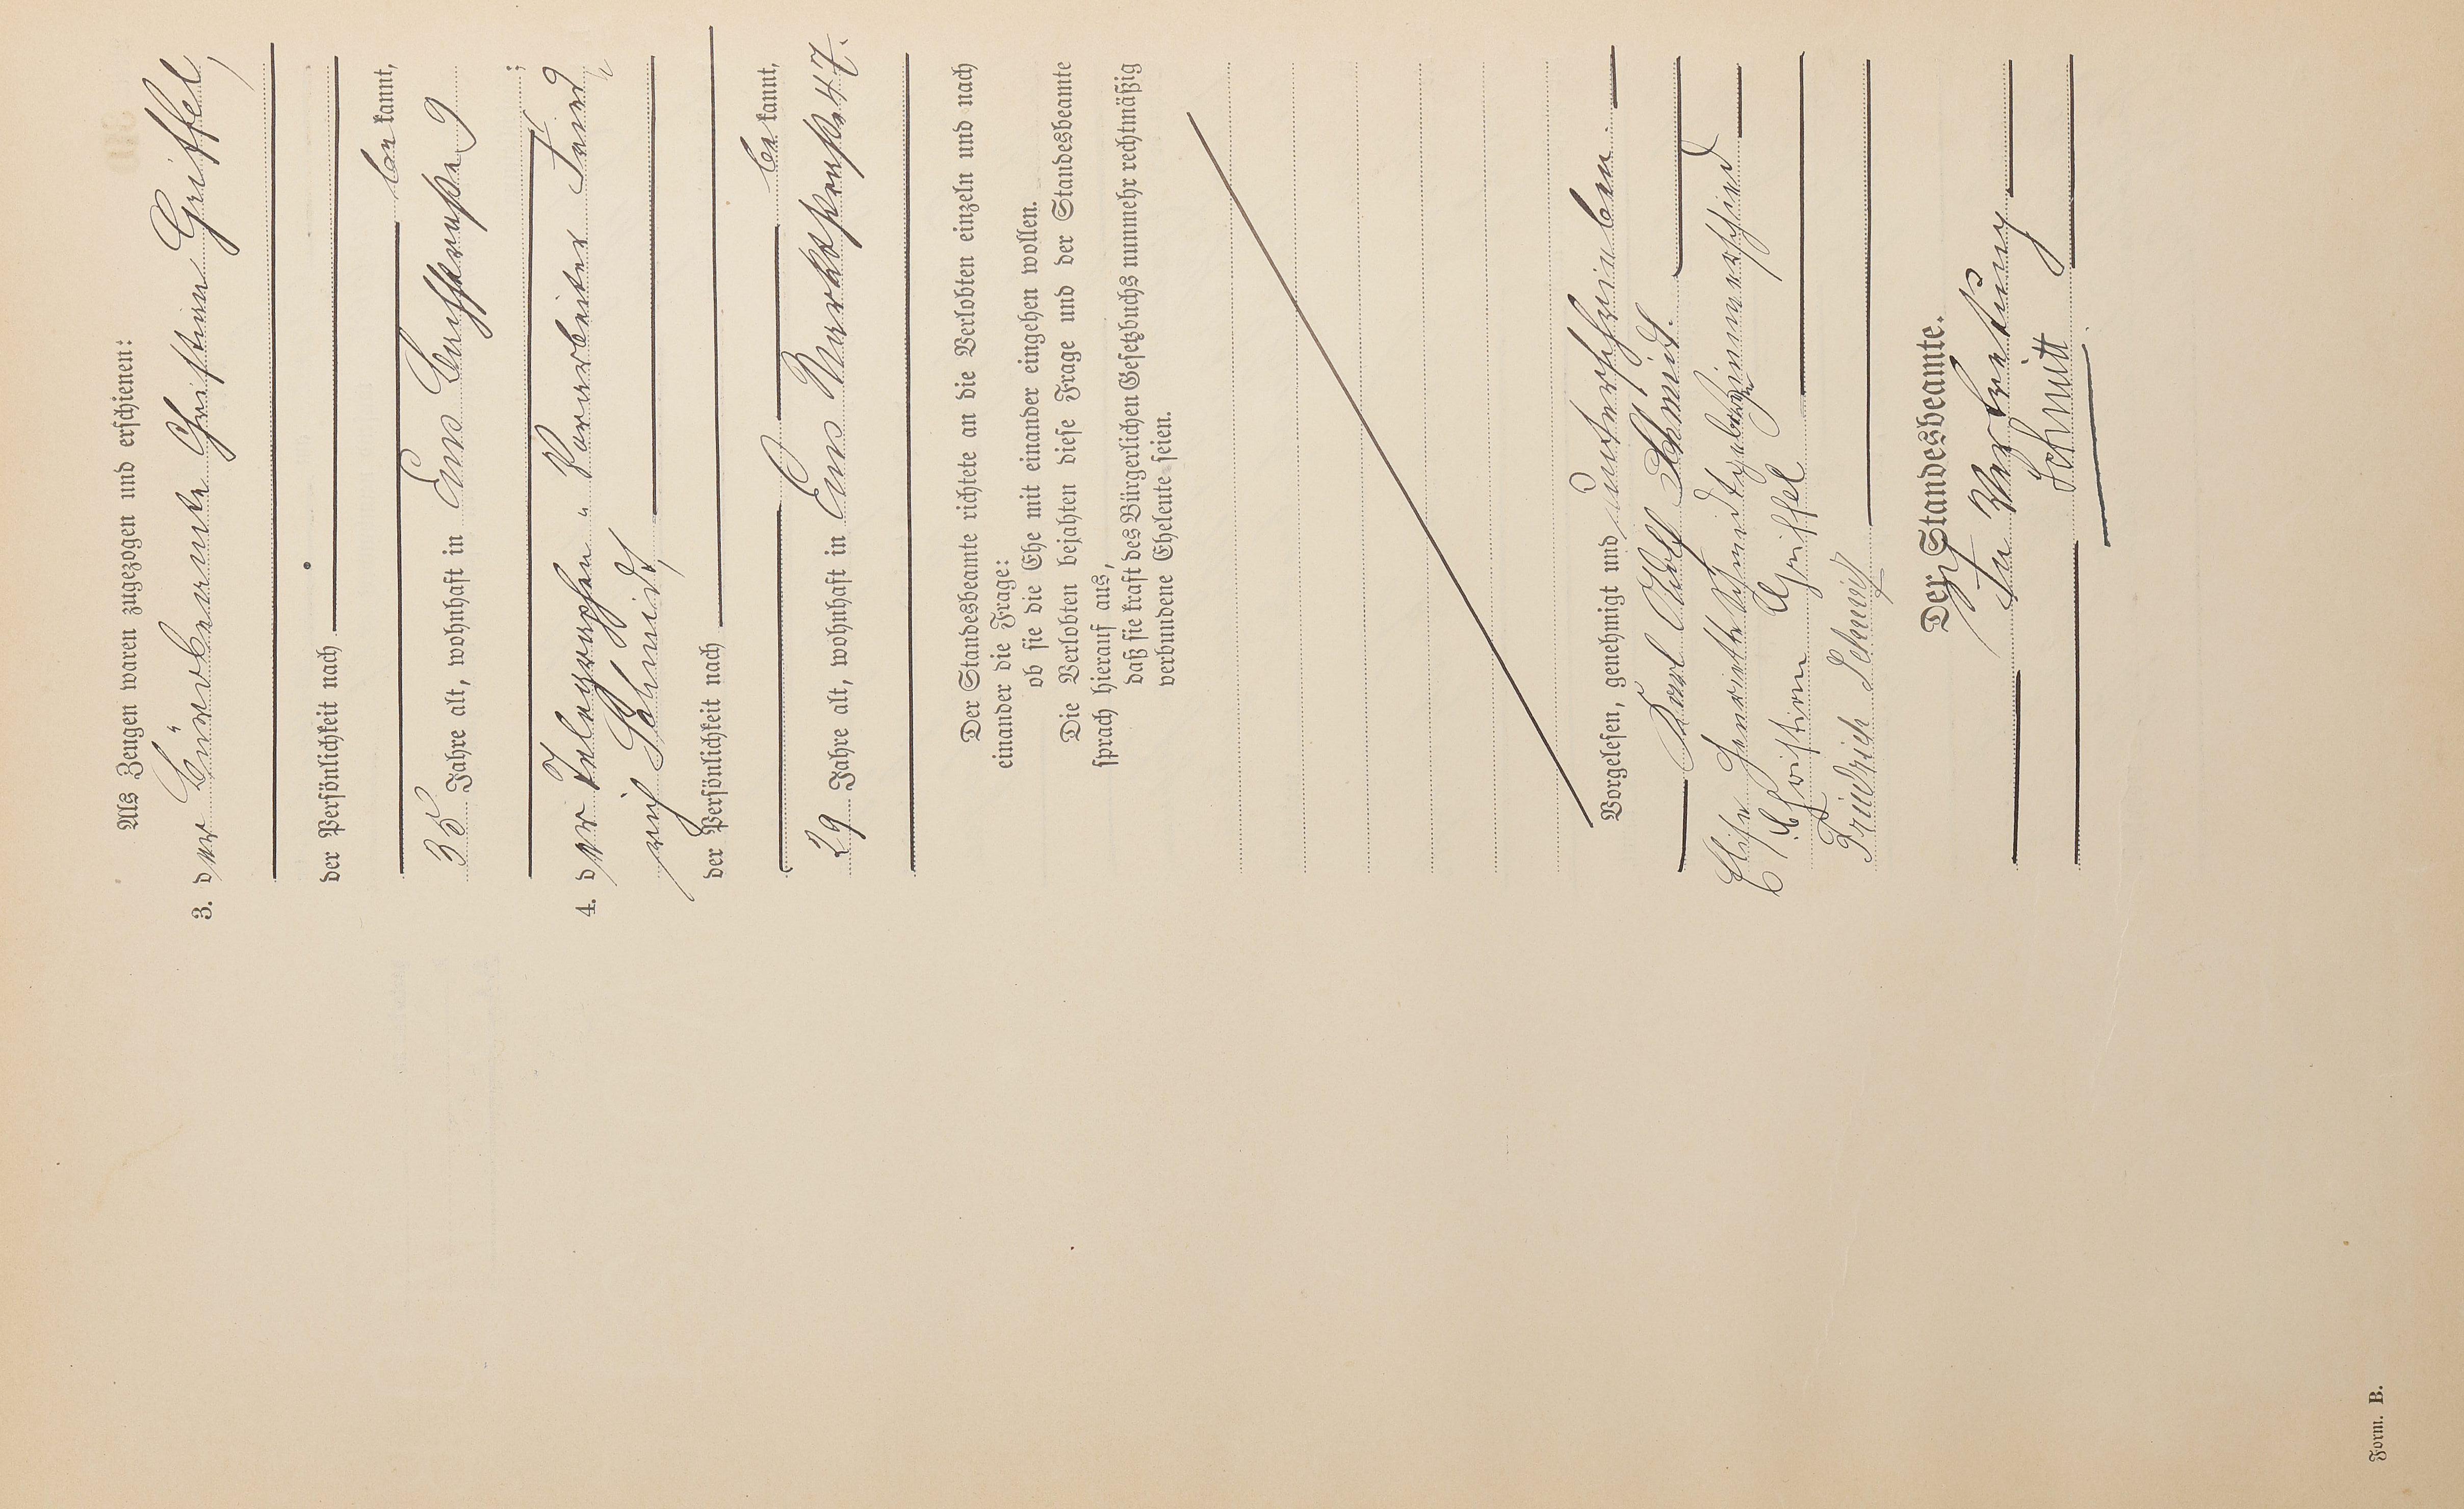 Als Zeugen waren zugezogen und erschienen:
3. der Bürobeamte Christian Griffel,
der Persönlichkeit nach
bekannt,
35 Jahre alt, wohnhaft in Ems Bachstraße 9
;
4. der Telegraphen-Vorarbeiter Fried
rich Schmidt,
der Persönlichkeit nach
bekannt,
29 Jahre alt, wohnhaft in Ems Marktstraße 47.
Der Standesbeamte richtete an die Verlobten einzeln und nach
einander die Frage:
ob sie die Ehe mit einander eingehen wollen.
Die Verlobten bejahten diese Frage und der Standesbeamte
sprach hierauf aus,
daß sie kraft des Bürgerlichen Gesetzbuchs nunmehr rechtmäßig
verbundene Eheleute seien.
Vorgelesen, genehmigt und unterschrieben.
Karl Adolf Schmidt.
Elise Henriette Schmidt geborene Zimmerschied
Christian Griffel
Friedrich Schmidt
Der Standesbeamte.
In Vertretung
Schmitt
Form. B.